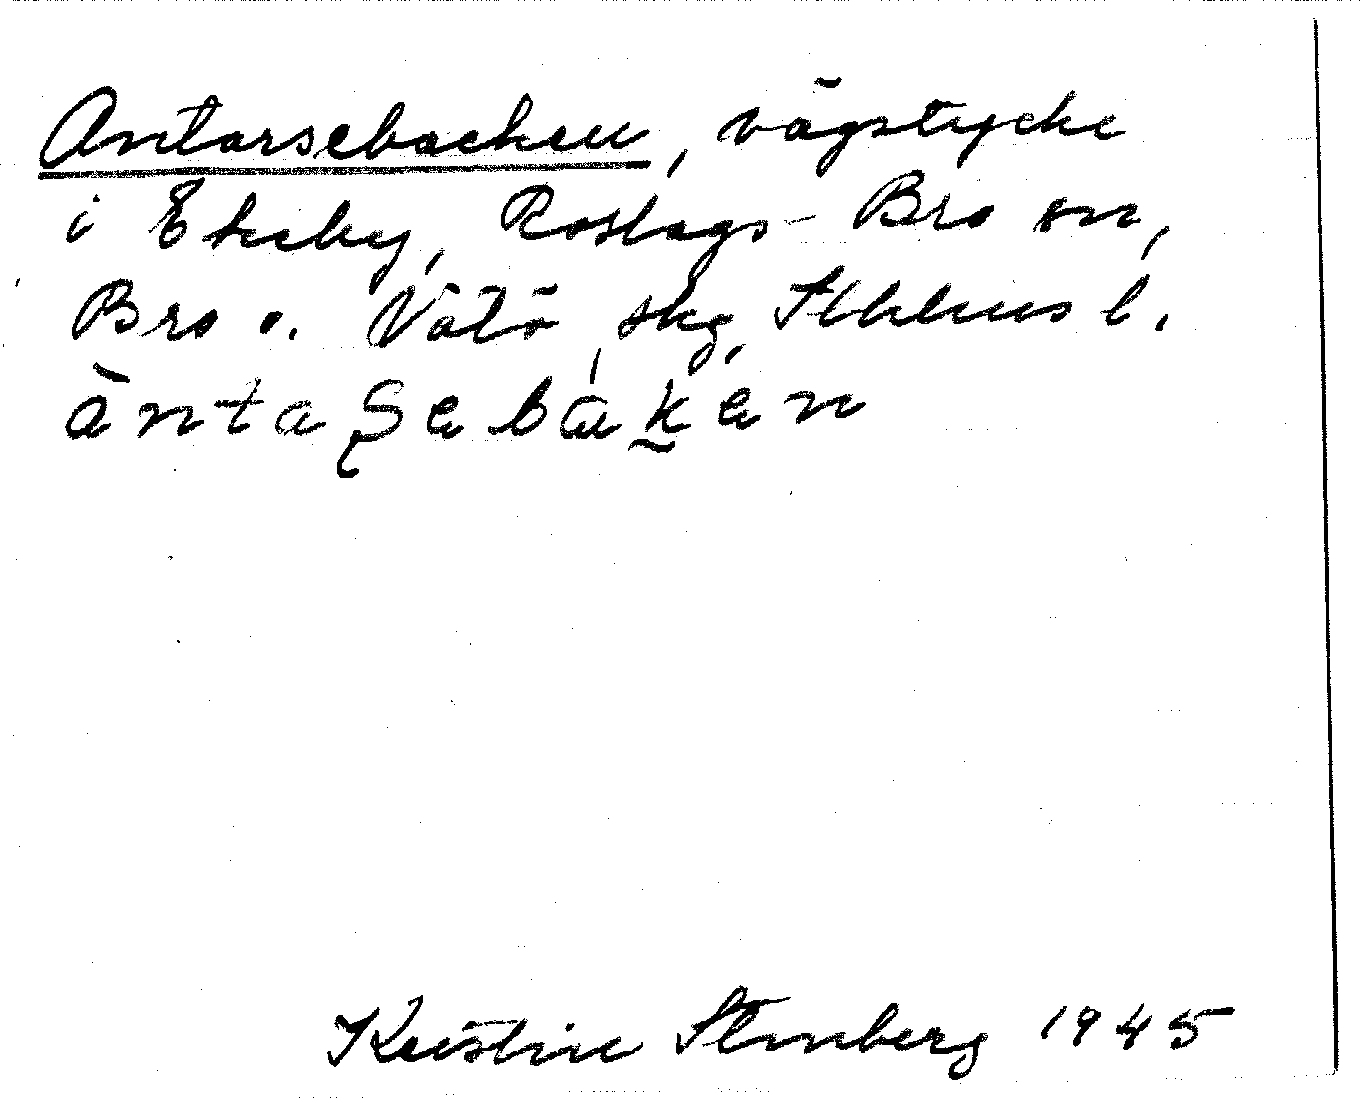 Antarsebacken, vägstycke
i Ekeby, Roslags-Bro sn,
Bro o. Vätö skg, Sthlms l.
àntaʂebáken
Kristin Stenberg 1945